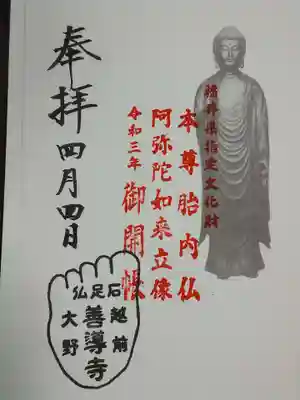 福井県指定文化財
本尊胎内仏
阿弥陀如来立像
令和三年 御開帳
奉拝 四月四日
仏足石
越前
善導寺
大野